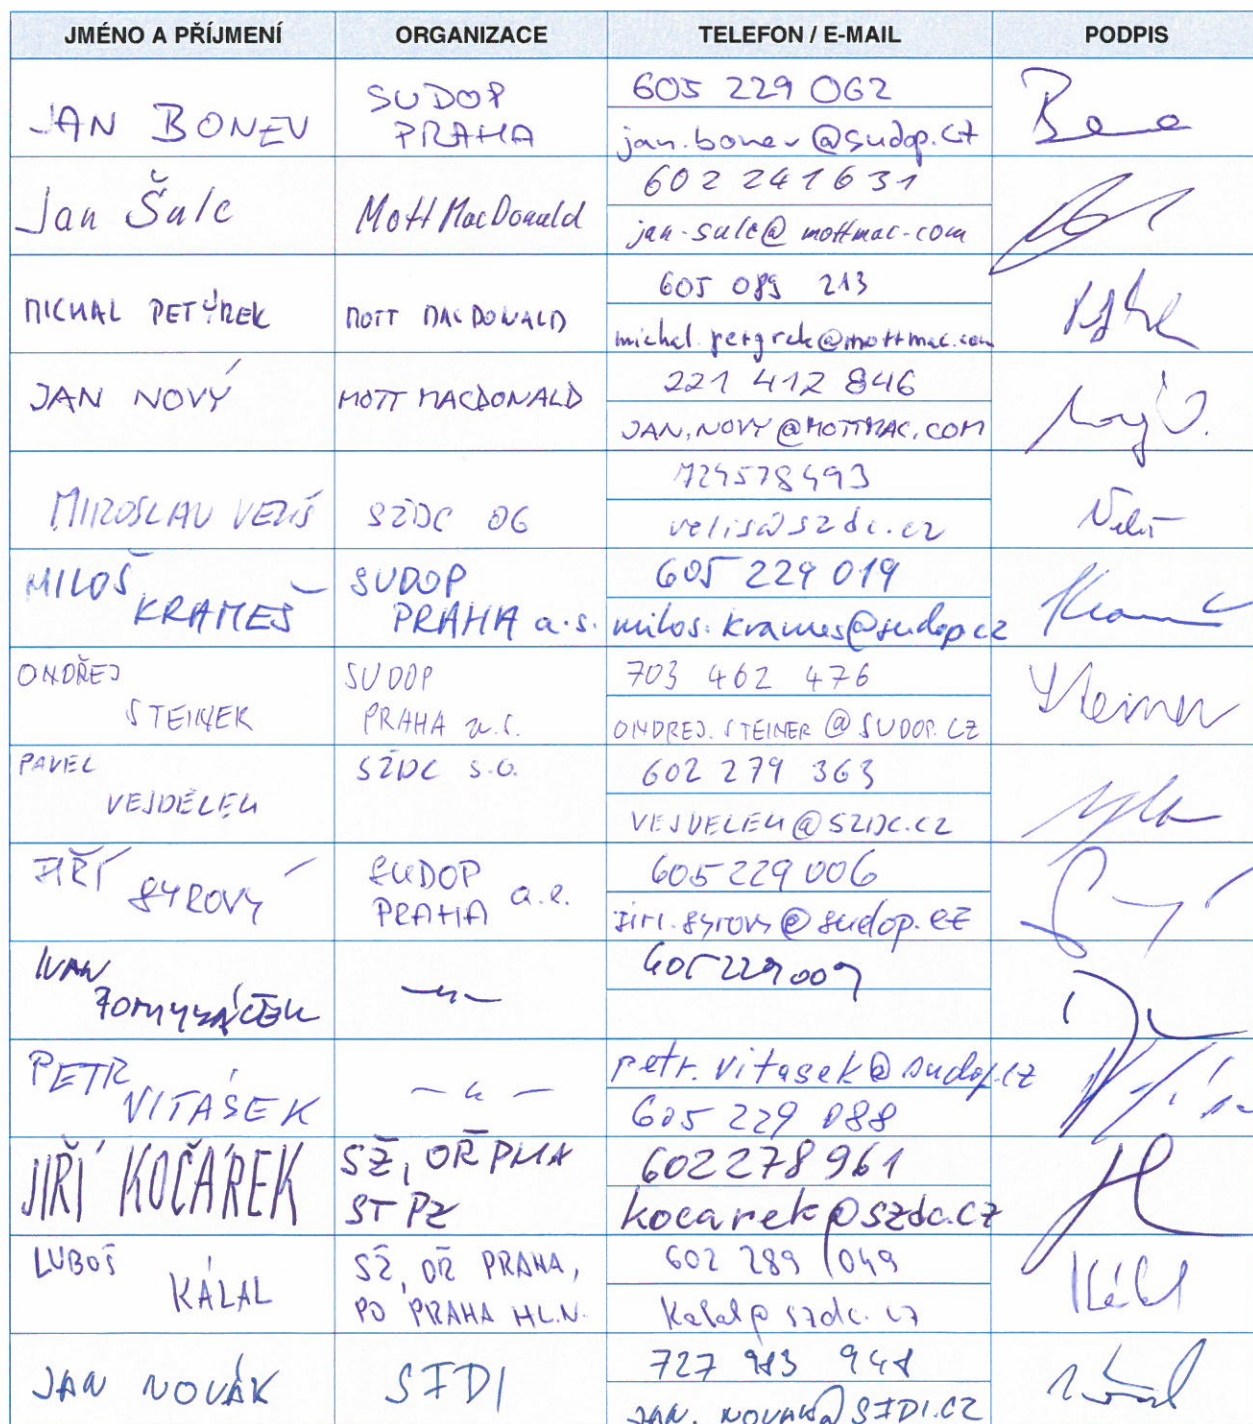 JMÉNO A PŘÍJMENÍ ORGANIZACE TELEFON / E-MAIL PODPIS
JAN BONEV SUDOP PRAHA 605 229 062
jan.bonev@sudop.cz
Jan Šulc Mott MacDonald 602 241 631
jan.sulc@mottmac.com
MICHAL PETÝREK MOTT MACDONALD 605 089 213
michal.petyrek@mottmac.com
JAN NOVÝ MOTT MACDONALD 221 412 846
JAN.NOVY@MOTTMAC.COM
MIROSLAV VELIŠ SŽDC O6 724578493
velis@szdc.cz
MILOŠ KRAMEŠ SUDOP PRAHA a.s. 605 229 019
milos.krames@sudop.cz
ONDŘEJ STEINER SUDOP PRAHA a.s. 703 462 476
ONDREJ.STEINER@SUDOP.CZ
PAVEL VEJDĚLEK SŽDC s.o. 602 279 363
VEJDELEK@SZDC.CZ
JIŘÍ SYROVÝ SUDOP PRAHA a.s. 605 229 006
jiri.syrovy@sudop.cz
IVAN 605 229 009
PETR VITÁSEK petr.vitasek@sudop.cz
605 229 088
JIŘÍ KOČÁREK SŽ, OŘ PHA STPZ 602278961
kocarek@szdc.cz
LUBOŠ KÁLAL SŽ, OŘ PRAHA, PO PRAHA HL.N. 602 289 049
Kalal@szdc.cz
JAN NOVÁK SFDI 727 983 948
JAN.NOVAK@SFDI.CZ